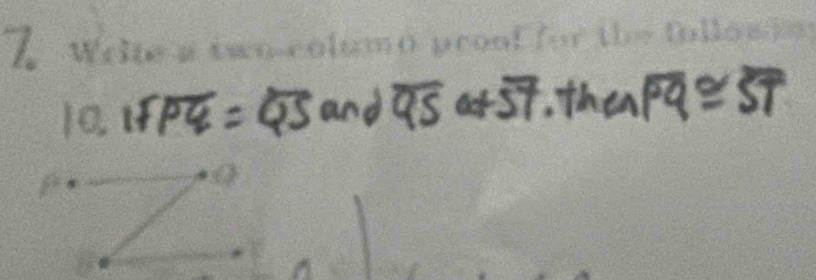 7. Write a two-column proof for the following
10. If PQ = QS and QS at ST. then PQ ≅ ST
P Q